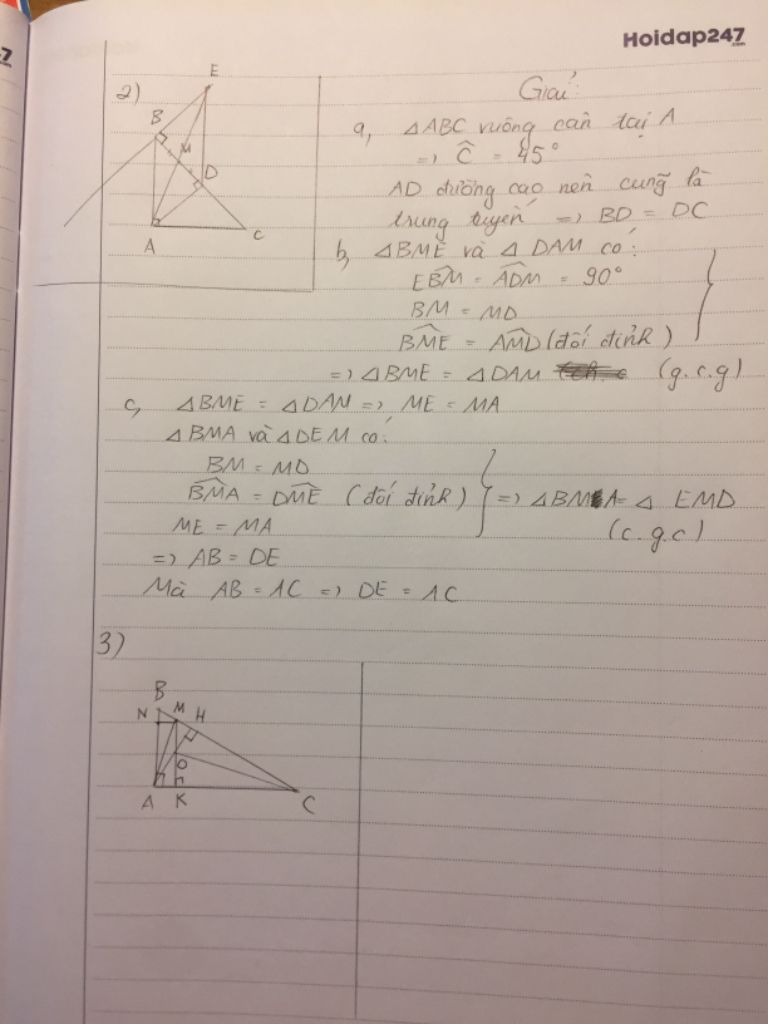 Hoidap247
.com
7
2)
E
B
M
D
A
C
Giải:
a, △ABC vuông cân tại A
=> Ĉ = 45°
AD đường cao nên cũng là
trung tuyến => BD = DC
b, △BME và △DAM có:
EBM̂ = ADM̂ = 90°
BM = MD
BMÊ = AMD̂ (đối đỉnh)
=> △BME = △DAM (g.c.g)
c, △BME = △DAM => ME = MA
△BMA và △DEM có:
BM = MD
BMÂ = DMÊ (đối đỉnh) => △BMA = △EMD
ME = MA (c.g.c)
=> AB = DE
Mà AB = AC => DE = AC
3)
B
N M H
O
A K C